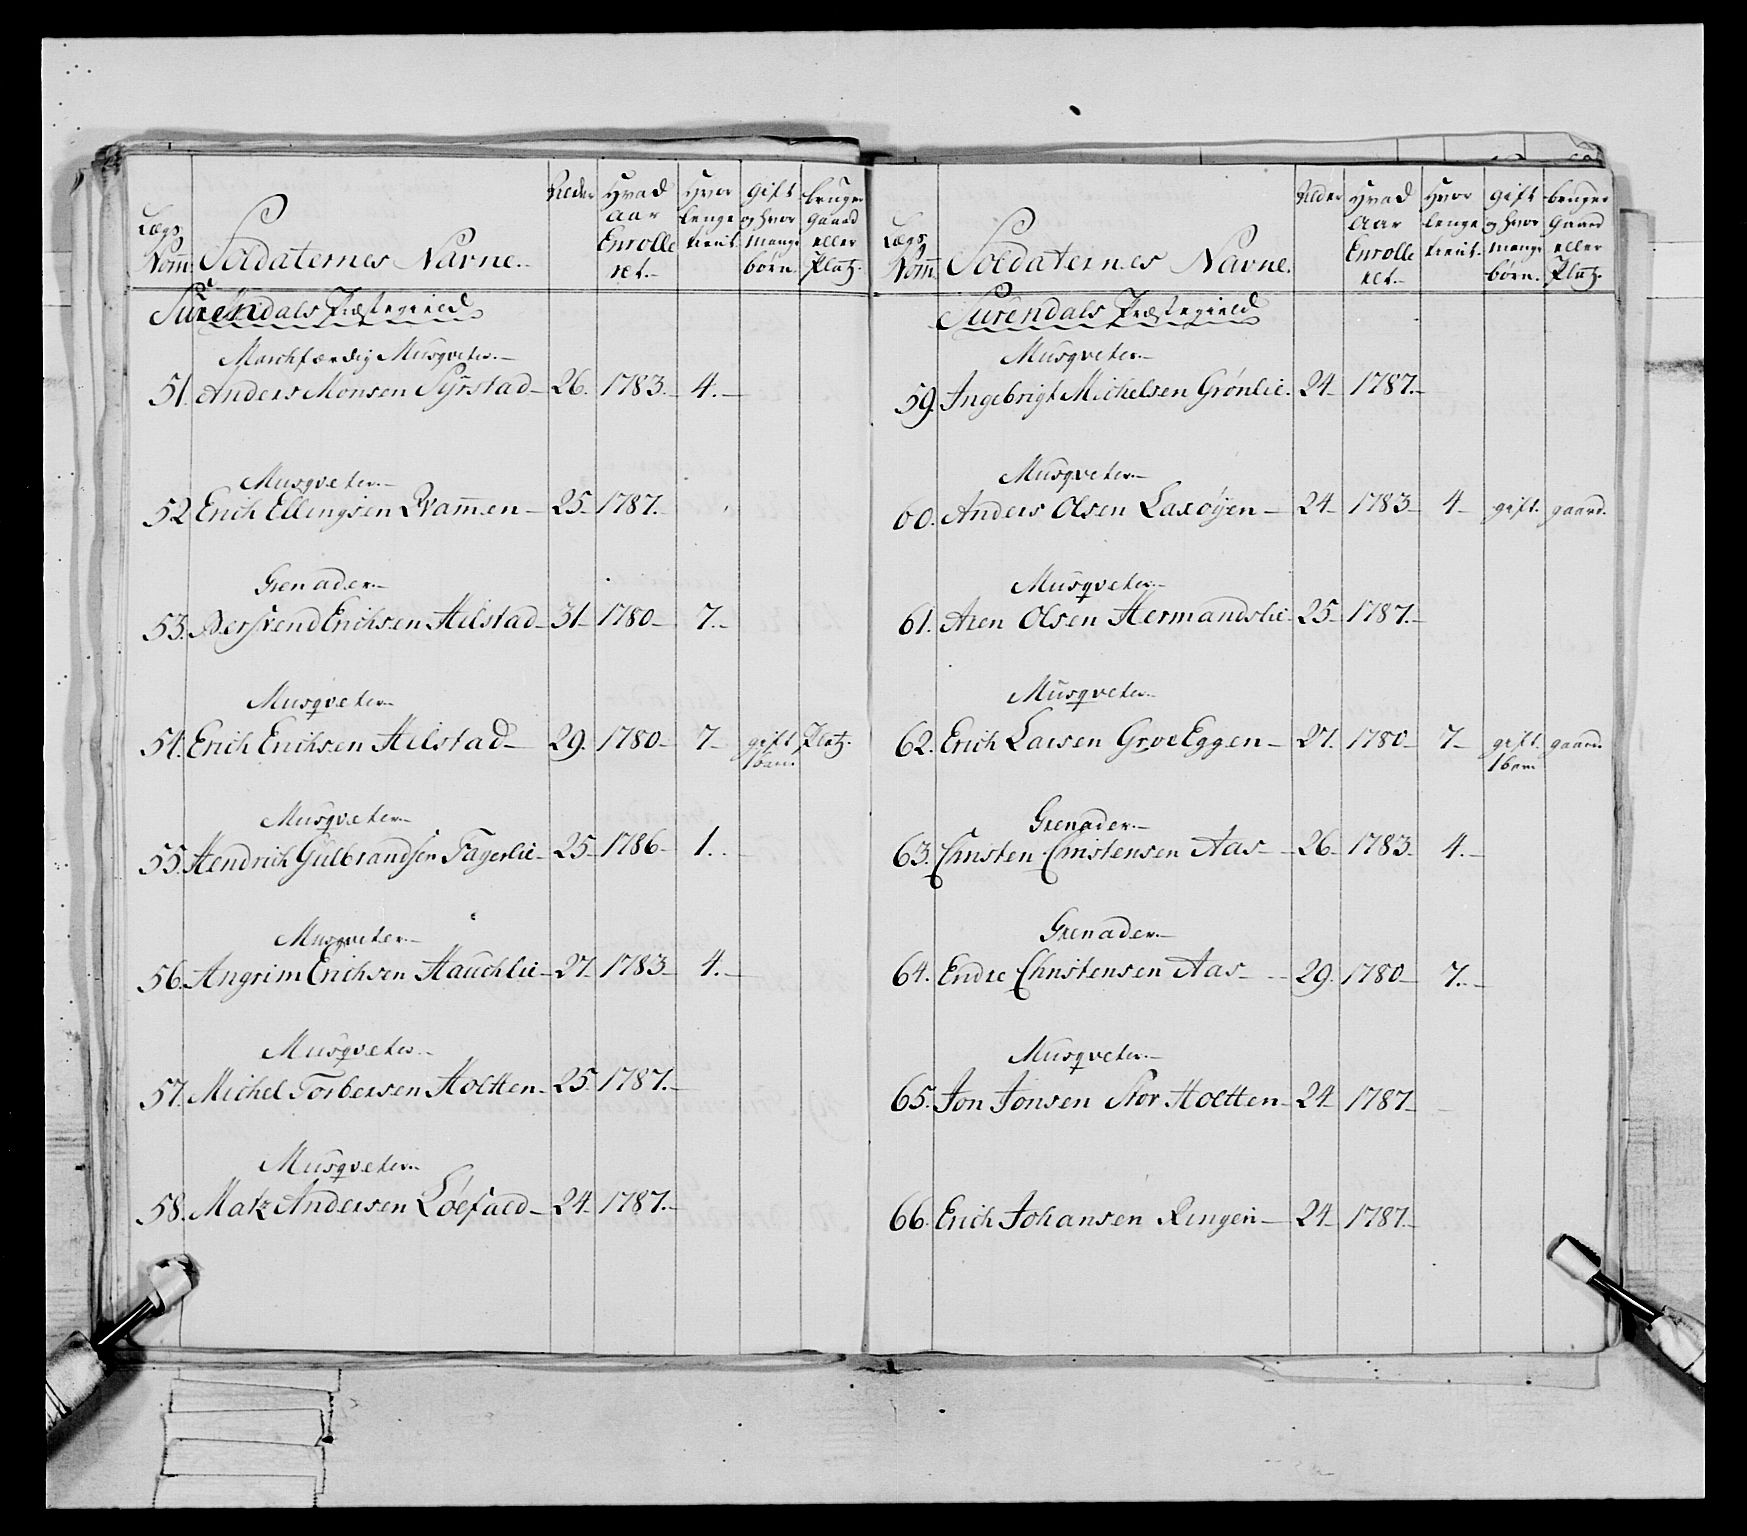 Lægs Nom. Soldaternes Navne. Alder Hvad Aar Enrolleret. Hvor lenge tient. gift og hvor mange børn. bruger gaard eller Platz.
Surendals Præstegield
Marchfærdig Musqveter.
51. Anders Monsen Syrstad 26. 1783. 4.
Musqveter.
52 Erich Ellingsen Qvammen 25 1787.
Grenader.
53. Erichsen Helstad 31 1780 7.
Musqveter.
54. Erich Erichsen Helstad 29. 1780 7 gift 1 barn. Platz.
Musqveter.
55. Hendrich Gulbrandsen Fagerlie 25 1786 1.
Musqveter.
56. Angrim Erichsen Hauchlie 27. 1783 4.
Musqveter.
57. Michel Torbersen Holtten 25 1787.
Musqveter.
58. Matz Andersen 24. 1787.
Lægs Nom. Soldaternes Navne. Alder Hvad Aar Enrolleret. Hvor lenge tient. gift og hvor mange børn. bruger gaard eller Platz.
Surendals Præstegield
Musqveter.
59. Ingebrigt Michelsen Grønlie. 24 1787.
Musqveter.
60. Anders Olsen Laxøyen 24 1783 4 gift. gaard.
Musqveter.
61. Aren Olsen Hermandslie 25 1787.
Musqveter.
62. Erich Larsen GrveEggen 27. 1780 7 gift. 1 barn gaard.
Grenader.
63. Christen Christensen Aas 26 1783 4.
Grenader.
64. Endre Christensen Aas 29. 1780 7.
Musqveter.
65. Jon Jonsen Stor Holtten 24 1787
66. Erich Johansen Ringen 24 1787